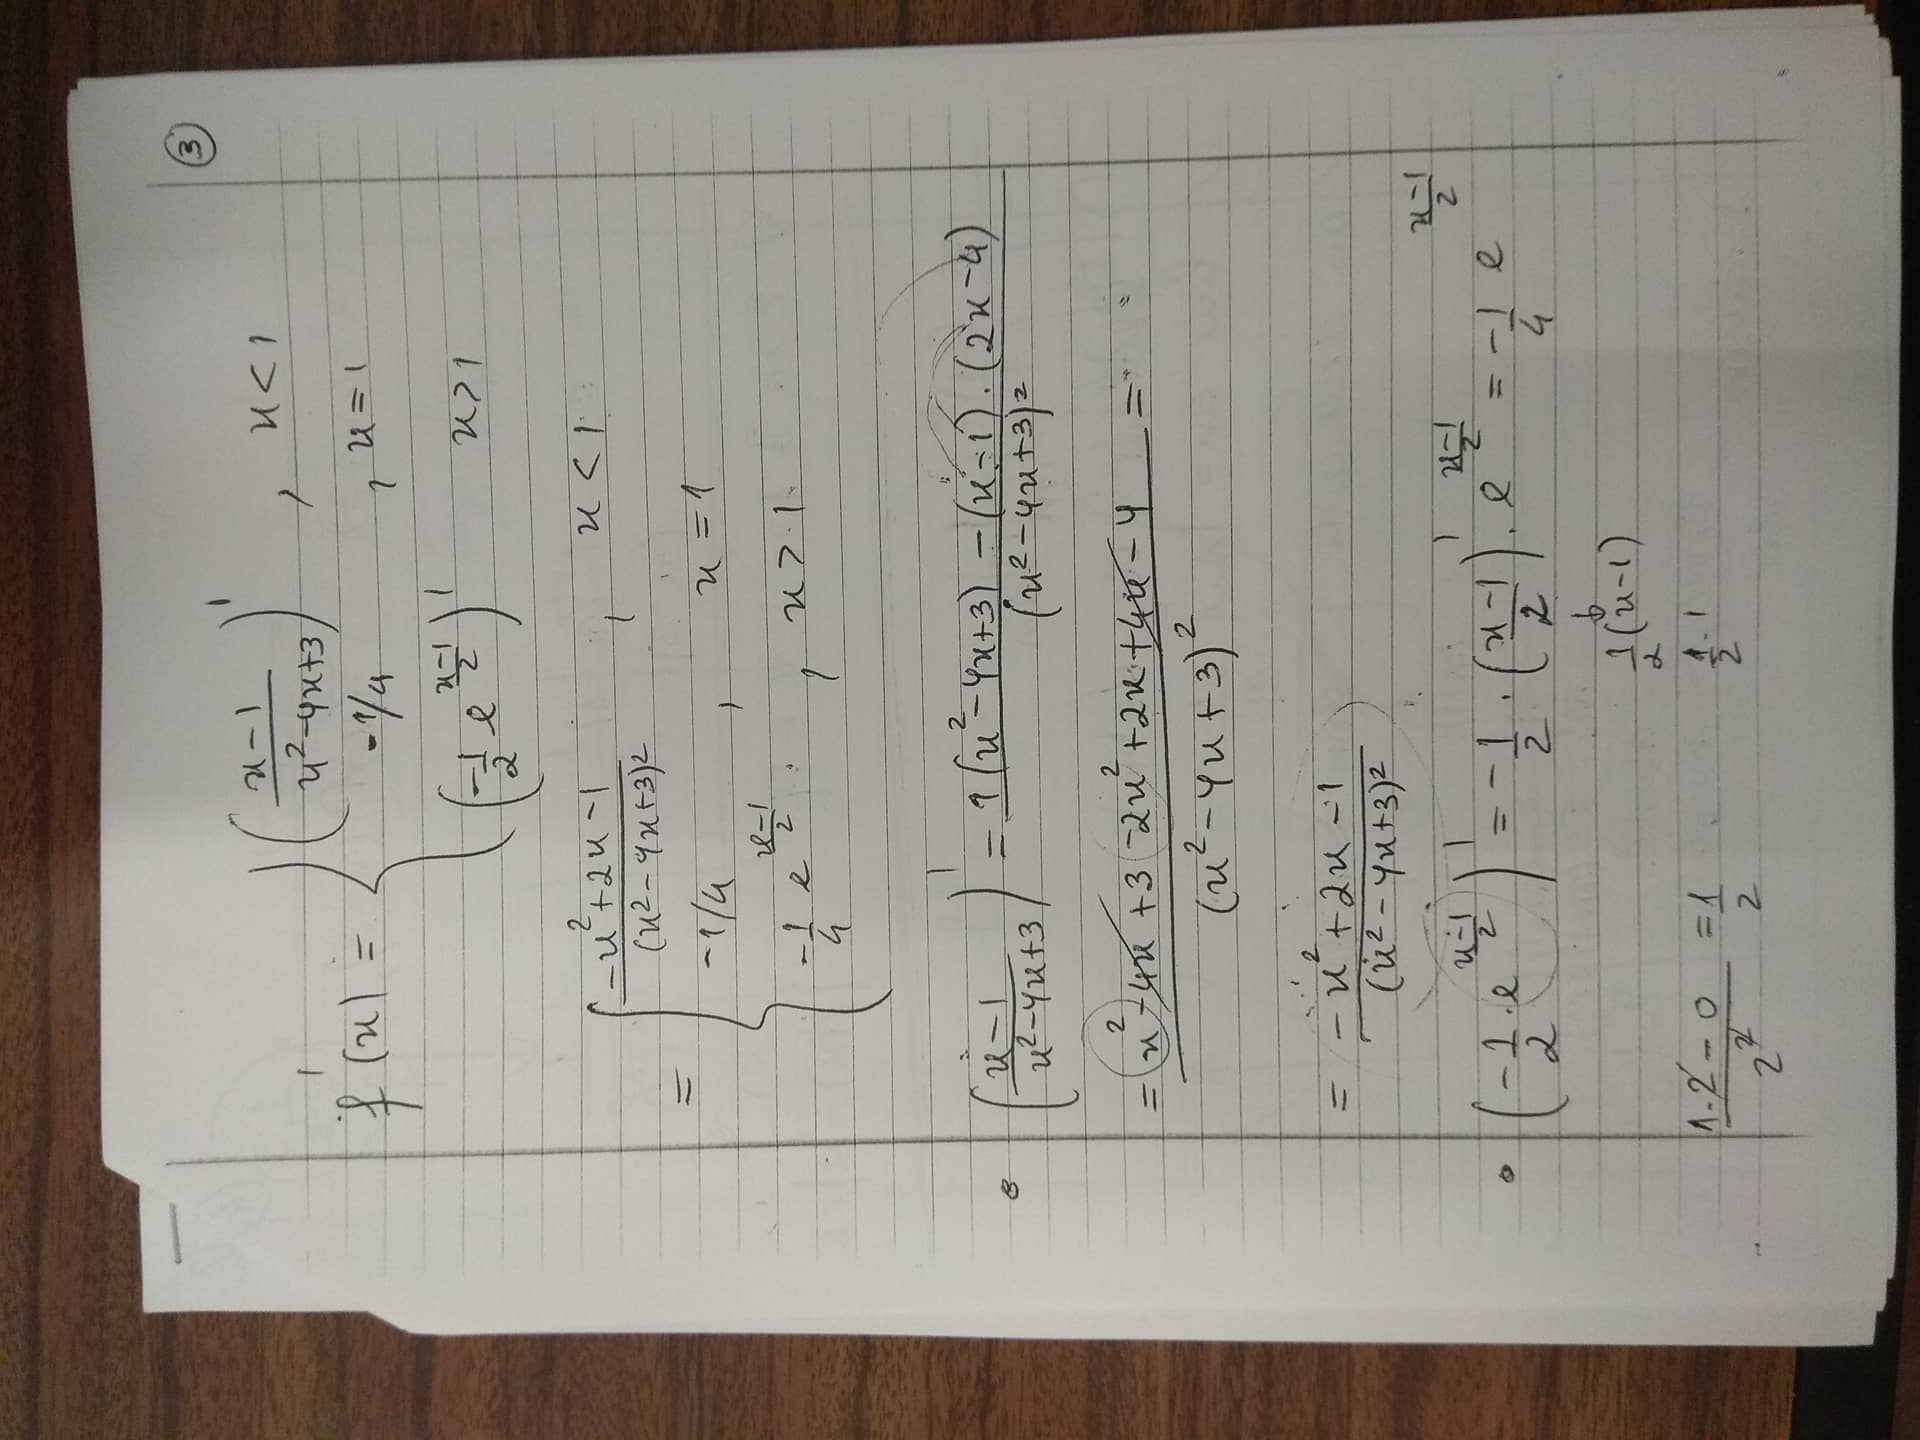 ③
f'(x) = { ((x-1)/(x²-4x+3))' , x<1
-1/4 , x=1
(-1/2 e^((x-1)/2))' x>1
= { (-x²+2x-1)/(x²-4x+3)² , x<1
-1/4 , x=1
-1/4 e^((x-1)/2) , x>1
((x-1)/(x²-4x+3))' = (1(x²-4x+3) - (x-1)·(2x-4))/(x²-4x+3)²
= (x²-4x+3-2x²+2x+4x-4)/(x²-4x+3)² =
= (-x²+2x-1)/(x²-4x+3)²
(-1/2·e^((x-1)/2))' = -1/2·((x-1)/2)'·e^((x-1)/2) = -1/4 e^((x-1)/2)
1/2(x-1)
(1·2-0)/2² = 1/2 1/2·1